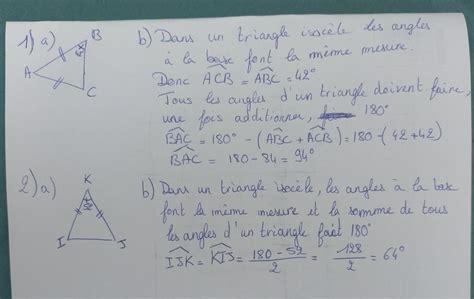 1) a)
B
42
A
C
b) Dans un triangle isocèle les angles
à la base font la même mesure.
Donc \widehat{ACB} = \widehat{ABC} = 42°
Tous les angles d'un triangle doivent faire,
une fois additionner, 180°
\widehat{BAC} = 180° - (\widehat{ABC} + \widehat{ACB}) = 180 - (42 + 42)
\widehat{BAC} = 180 - 84 = 94°
2) a)
K
52
I
J
b) Dans un triangle isocèle, les angles à la base
font la même mesure et la somme de tous
les angles d'un triangle fait 180°
\widehat{IJK} = \widehat{KIJ} = \frac{180 - 52}{2} = \frac{128}{2} = 64°